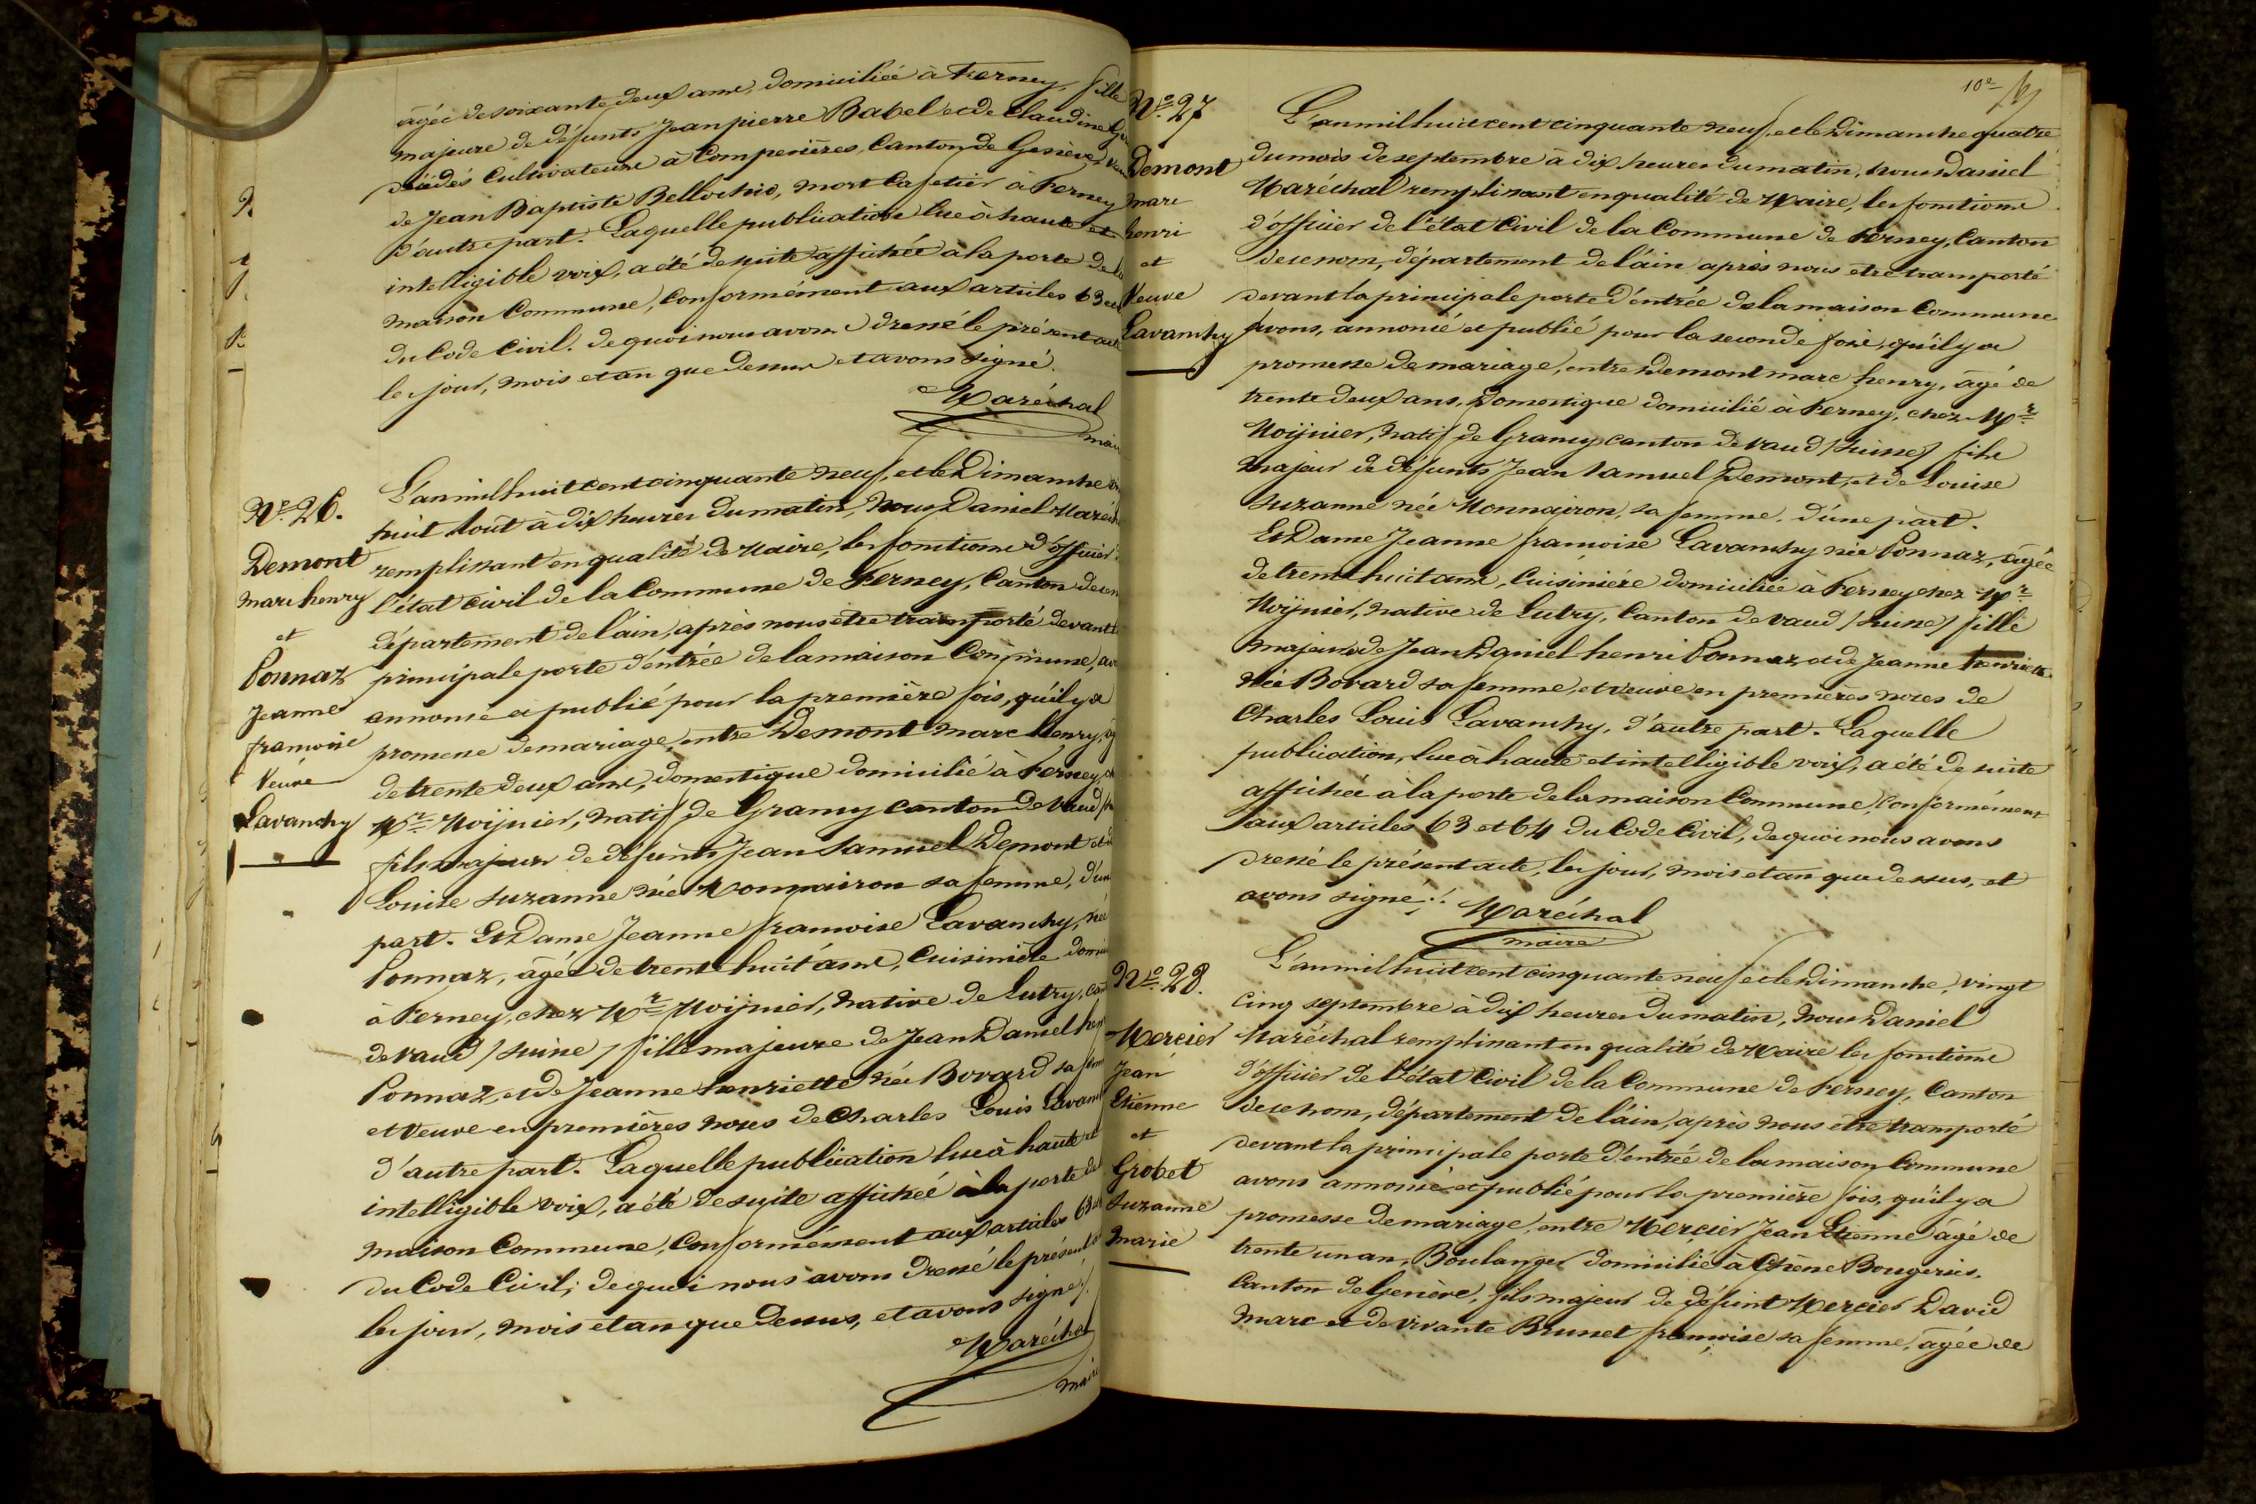 âgée de soixante deux ans, domiciliée à Ferney, fille
majeure de défunts Jean pierre Babel et de Claudine
décédés Cultivateurs à Compesières, Canton de Genève,
de Jean Baptiste Bellochio, mort Cafetier à Ferney
d'autre part. Laquelle publication lue à haute et
intelligible voix, a été de suite affichée à la porte de la
maison Commune, Conformément aux articles 63 et
du Code Civil. de quoi nous avons dressé le présent acte
les jour, mois et an que dessus et avons signé.
Maréchal
maire
N° 26.
Demont
marc henry
et
Ponnaz
Jeanne
francoise
Veuve
Lavanchy
L'an mil huit cent cinquante neuf, et le Dimanche
huit août à dix heures du matin, Nous Daniel Maréchal
remplissant en qualité de Maire, les fonctions d'officier
l'état Civil de la Commune de Ferney, Canton de ce
département de l'ain, après nous être transporté devant
principale porte d'entrée de la maison Commune, avons
annoncé et publié pour la première fois, qu'il y a
promesse de mariage, entre Demont Marc Henry,
de trente deux ans, domestique domicilié à Ferney,
Mr Moijnier, natif de Grancy canton de Vaud
fils majeur de défunts Jean Samuel Demont et
Louise Suzanne née Monnairon sa femme, d'une
part. Et Dame Jeanne francoise Lavanchy, née
Ponnaz, âgée de trente huit ans, Cuisinière
à Ferney, chez Mr Moijnier, native de Lutry,
de Vaud / suisse / fille majeure de Jean Daniel henri
Ponnaz et de Jeanne henriette née Bovard sa femme
et Veuve en premières noces de Charles Louis Lavanchy
d'autre part. Laquelle publication lue à haute et
intelligible voix, a été de suite affichée à la porte de la
maison Commune, Conformément aux articles 63
du Code Civil; de quoi nous avons dressé le présent
les jour, mois et an que dessus, et avons signé.
Maréchal
maire
10e
N° 27
Demont
marc
henri
et
Veuve
Lavanchy
L'an mil huit cent cinquante neuf, et le Dimanche quatre
du mois de septembre à dix heures du matin, nous Daniel
Maréchal remplissant en qualité de Maire, les fonctions
d'officier de l'état Civil de la Commune de Ferney, Canton
de ce nom, département de l'ain après nous être transporté
devant la principale porte d'entrée de la maison Commune
avons, annoncé et publié pour la seconde fois, qu'il y a
promesse de mariage, entre Demont marc henry, âgé de
trente deux ans, Domestique domicilié à Ferney, chez Mr
Moijnier, natif de Grancy canton de Vaud / suisse / fils
majeur de défunts Jean Samuel Demont, et de Louise
Suzanne née Monnairon, sa femme. d'une part.
Et Dame Jeanne francoise Lavanchy née Ponnaz, âgée
de trente huit ans, Cuisinière domiciliée à Ferney chez Mr
Moijnier, native de Lutry, Canton de Vaud / suisse / fille
majeure de Jean Daniel henri Ponnaz et de Jeanne henriette
née Bovard sa femme, et veuve en premières noces de
Charles Louis Lavanchy, d'autre part. Laquelle
publication, lue à haute et intelligible voix, a été de suite
affichée à la porte de la maison Commune, Conformément
aux articles 63 et 64 du Code Civil, de quoi nous avons
dressé le présent acte, les jour, mois et an que dessus, et
avons signé.
Maréchal
maire
N° 28.
Mercier
Jean
Etienne
et
Grobet
Suzanne
Marie
L'an mil huit cent cinquante neuf et le Dimanche, vingt
cinq septembre à dix heures du matin, Nous Daniel
Maréchal remplissant en qualité de Maire les fonctions
d'officier de l'état Civil de la Commune de Ferney, Canton
de ce nom, département de l'ain, après nous être transporté
devant la principale porte d'entrée de la maison Commune
avons annoncé et publié pour la première fois, qu'il y a
promesse de mariage, entre Mercier Jean Etienne âgé de
trente un an, Boulanger domicilié à Chêne Bougeries,
Canton de Genève, fils majeur de défunt Mercier David
Marc et de vivante Brunet françoise sa femme, âgée de